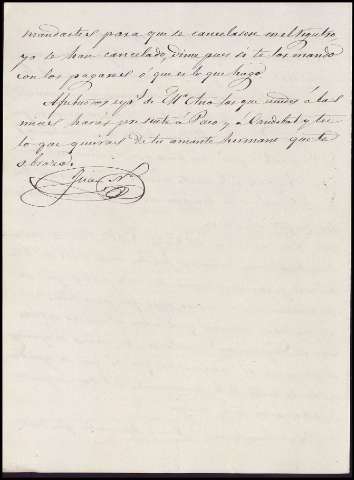 mandastes para que se cancelasen en el registro
ya se han cancelado, dime pues si te los mando
con los pagarés ó que es lo que hago
Afectuosos esps. de Ma. Ana las que unidas á las
mias harás presente á Paco, y a Cristobal y tu
lo que quieras de tu amante hermano que te
abraza
Juan N.